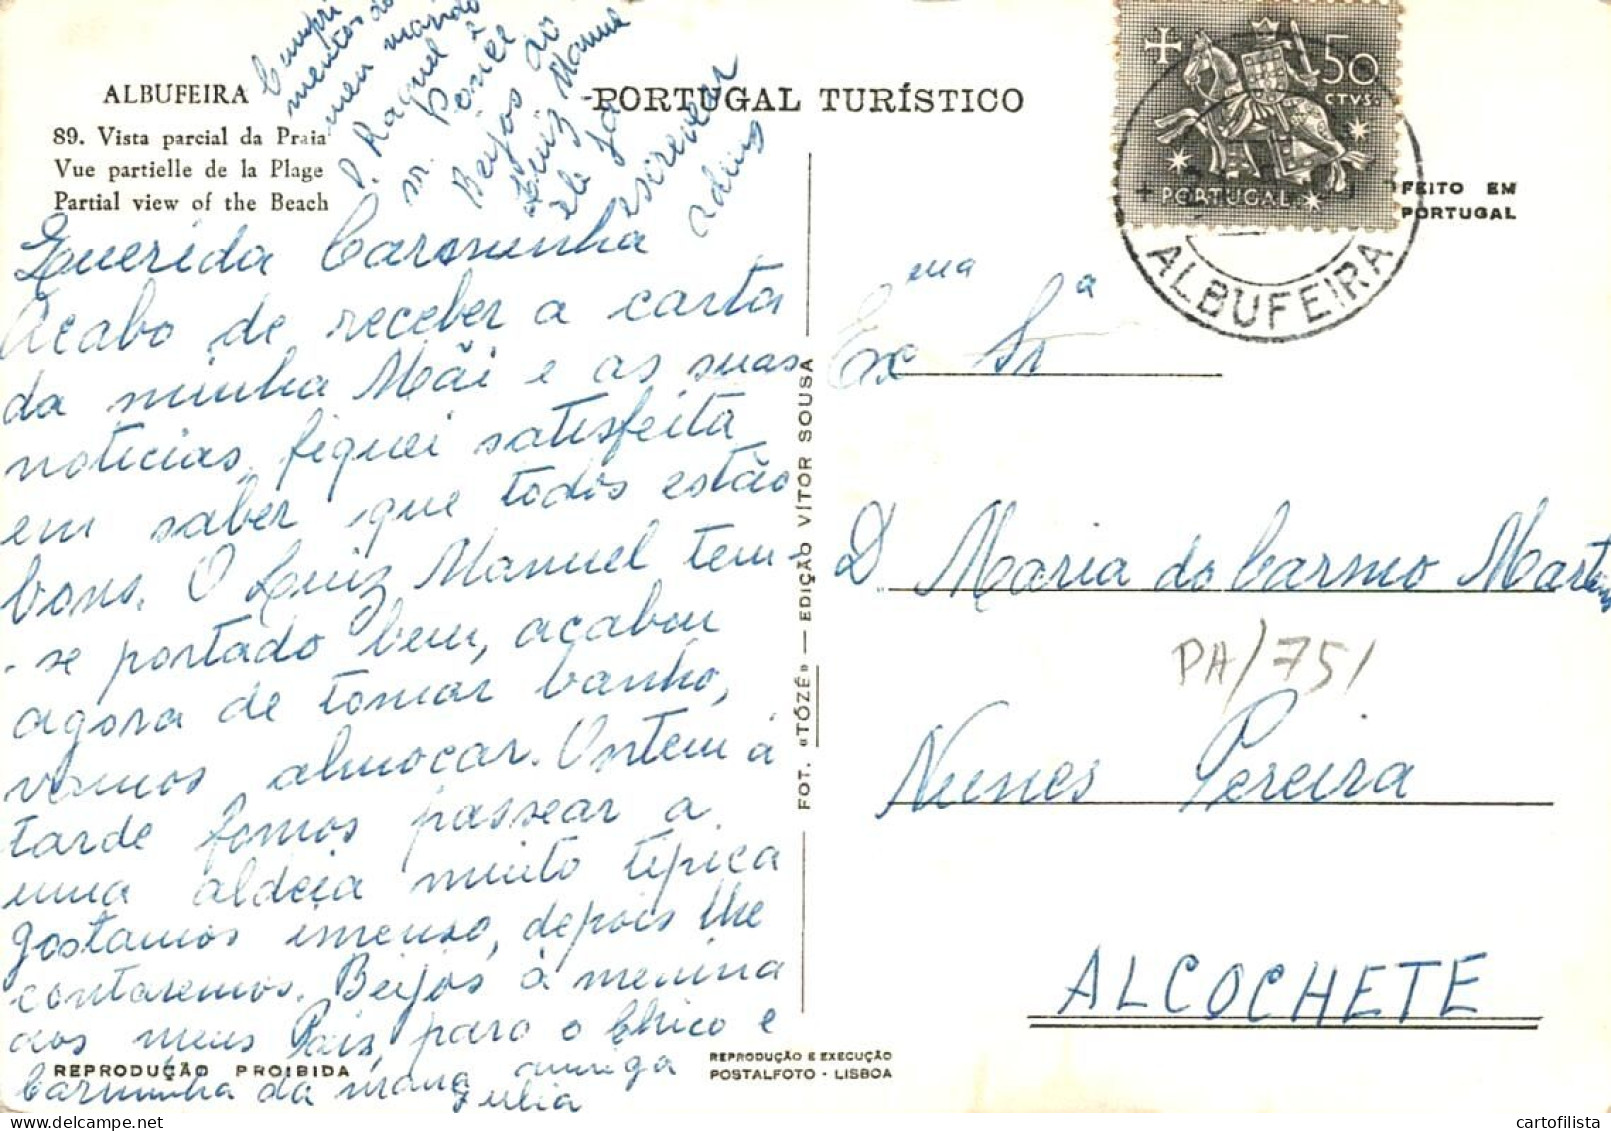 ALBUFEIRA
89. Vista parcial da Praia
Vue partielle de la Plage
Partial view of the Beach
-PORTUGAL TURÍSTICO
50
CTVS.
PORTUGAL
ALBUFEIRA
FEITO EM
PORTUGAL
Cumpri
mentos do
meu marido
D. Raquel
Beijos ao
Luiz Manuel
ele já
escrever
adeus
Querida Carminha
Acabo de receber a carta
da minha Mãi e as suas
noticias, fiquei satisfeita
em saber que todos estão
bons. O Luiz Manuel tem-
-se portado bem, acabou
agora de tomar banho,
vamos almoçar. Ontem á
tarde fomos passear a
uma aldeia muito tipica
gostamos imenso, depois lhe
contaremos. Beijos á menina
aos meus Pais, para o Chico e
Carminha da mana amiga
Julia
REPRODUÇÃO PROIBIDA
FOT. «TÓZÉ» — EDIÇÃO VÍTOR SOUSA
REPRODUÇÃO E EXECUÇÃO
POSTALFOTO - LISBOA
Exma Sra
D. Maria do Carmo Martins
PA/751
Nunes Pereira
ALCOCHETE
cartofilista